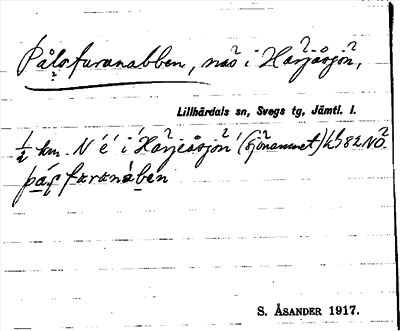 Pålsfuranabben, näs i Härjåsjön,
Lillhärdals sn, Svegs tg, Jämtl. l.
½ km. N é i Härjeåsjön (sjönamnet) h 82 NÖ.
pa̱ʹfuranàben
S. ÅSANDER 1917.